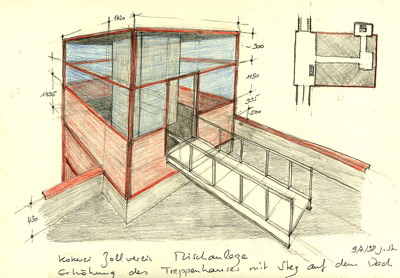 1420
~ 900
1150
935
500
1795
430
Kokerei Zollverein Mischanlage
Erhöhung des Treppenhauses mit Steg auf dem Dach